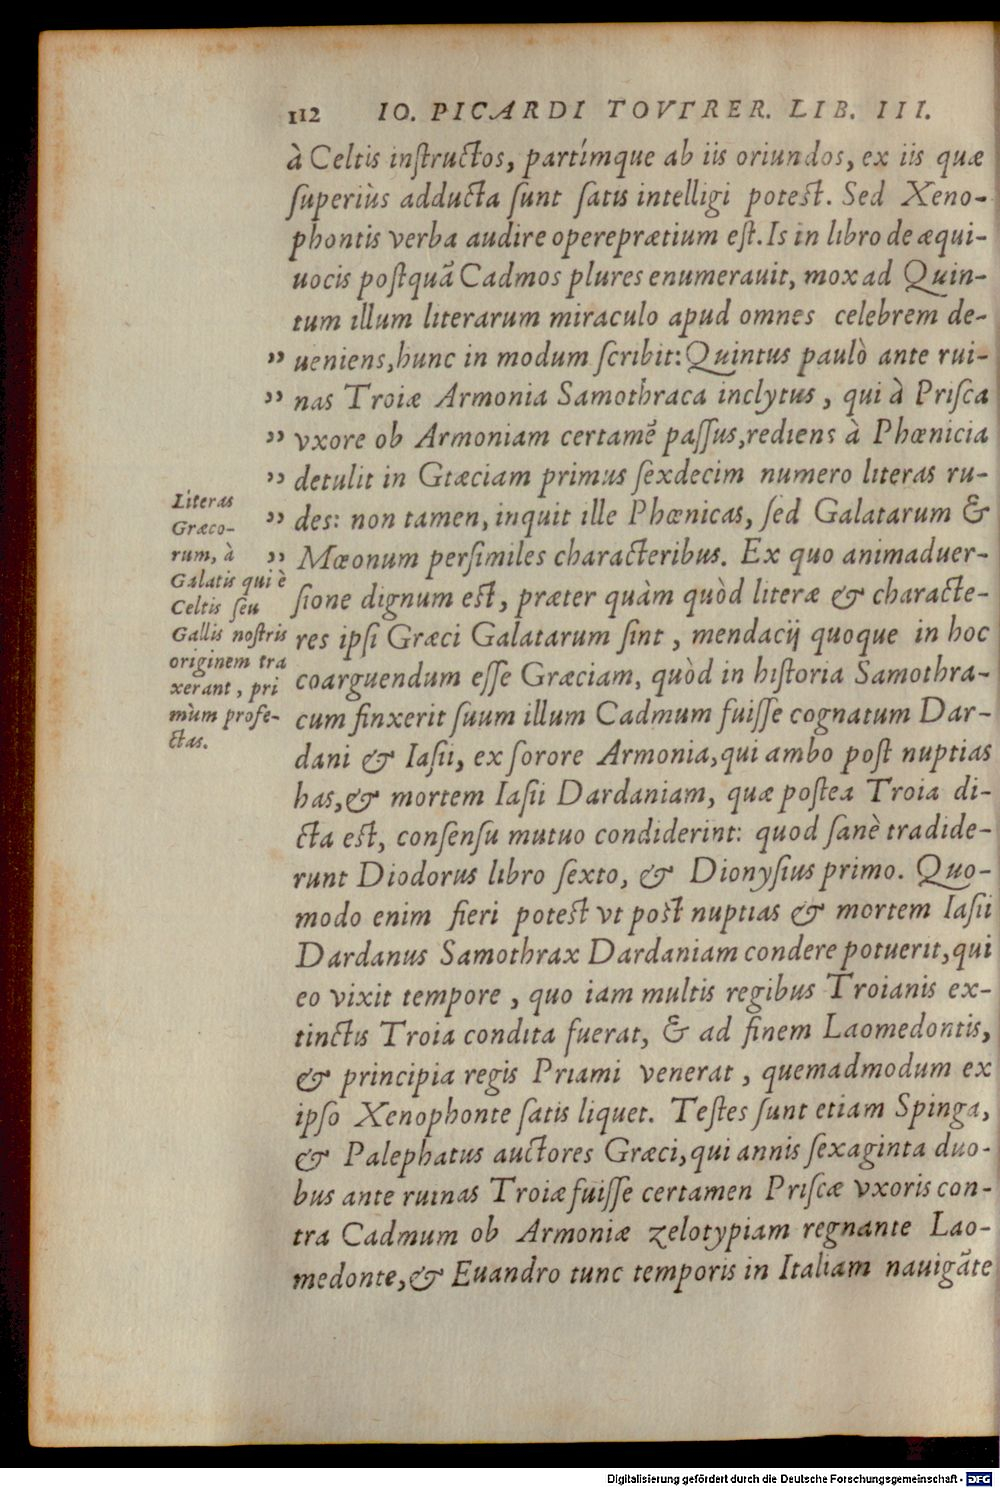 112 IO. PICARDI TOVTRER. LIB. III.
à Celtis inſtructos, partímque ab iis oriundos, ex iis quæ
ſuperiùs adducta ſunt ſatis intelligi poteſt. Sed Xeno-
phontis verba audire operepræetium eſt. Is in libro de æqui-
uocis poſtquã Cadmos plures enumerauit, mox ad Quin-
tum illum literarum miraculo apud omnes celebrem de-
" ueniens, hunc in modum ſcribit: Quintus paulò ante rui-
" nas Troiæ Armonia Samothraca inclytus, qui à Priſca
" vxore ob Armoniam certamẽ paſſus, rediens à Phœnicia
" detulit in Gtæciam primus ſexdecim numero literas ru-
" des: non tamen, inquit ille Phœnicas, ſed Galatarum &
" Mæonum perſimiles characteribus. Ex quo animaduer-
ſione dignum eſt, præter quàm quòd literæ & characte-
res ipſi Græci Galatarum ſint, mendacij quoque in hoc
coarguendum eſſe Græciam, quòd in hiſtoria Samothra-
cum finxerit ſuum illum Cadmum fuiſſe cognatum Dar-
dani & Iaſii, ex ſorore Armonia, qui ambo poſt nuptias
has, & mortem Iaſii Dardaniam, quæ poſtea Troia di-
cta eſt, conſenſu mutuo condiderint: quod ſanè tradide-
runt Diodorus libro ſexto, & Dionyſius primo. Quo-
modo enim fieri poteſt vt poſt nuptias & mortem Iaſii
Dardanus Samothrax Dardaniam condere potuerit, qui
eo vixit tempore, quo iam multis regibus Troianis ex-
tinctis Troia condita fuerat, & ad finem Laomedontis,
& principia regis Priami venerat, quemadmodum ex
ipſo Xenophonte ſatis liquet. Teſtes ſunt etiam Spinga,
& Palephatus auctores Græci, qui annis ſexaginta duo-
bus ante ruinas Troiæ fuiſſe certamen Priſcæ vxoris con-
tra Cadmum ob Armoniæ zelotypiam regnante Lao-
medonte, & Euandro tunc temporis in Italiam nauigãte
Literas
Græco-
rum, à
Galatis qui è
Celtis ſeu
Gallis noſtris
originem tra
xerant, pri
mùm profe-
ctas.
Digitalisierung gefördert durch die Deutsche Forschungsgemeinschaft - DFG